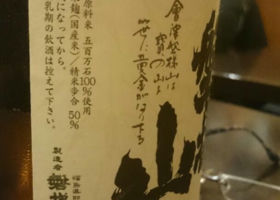 會津磐梯山は
寶の山よ
笹に黄金がなり下る
原料米 五百万石100%使用
麹(国産米)/精米歩合 50%
になってから。
乳期の飲酒は控えて下さい。
製造者
福島県